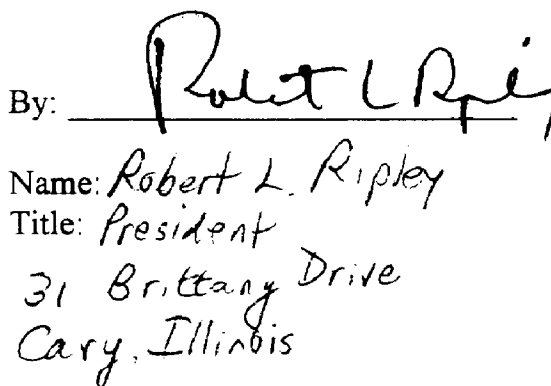 By: Robert L Ripley
Name: Robert L. Ripley
Title: President
31 Brittany Drive
Cary, Illinois